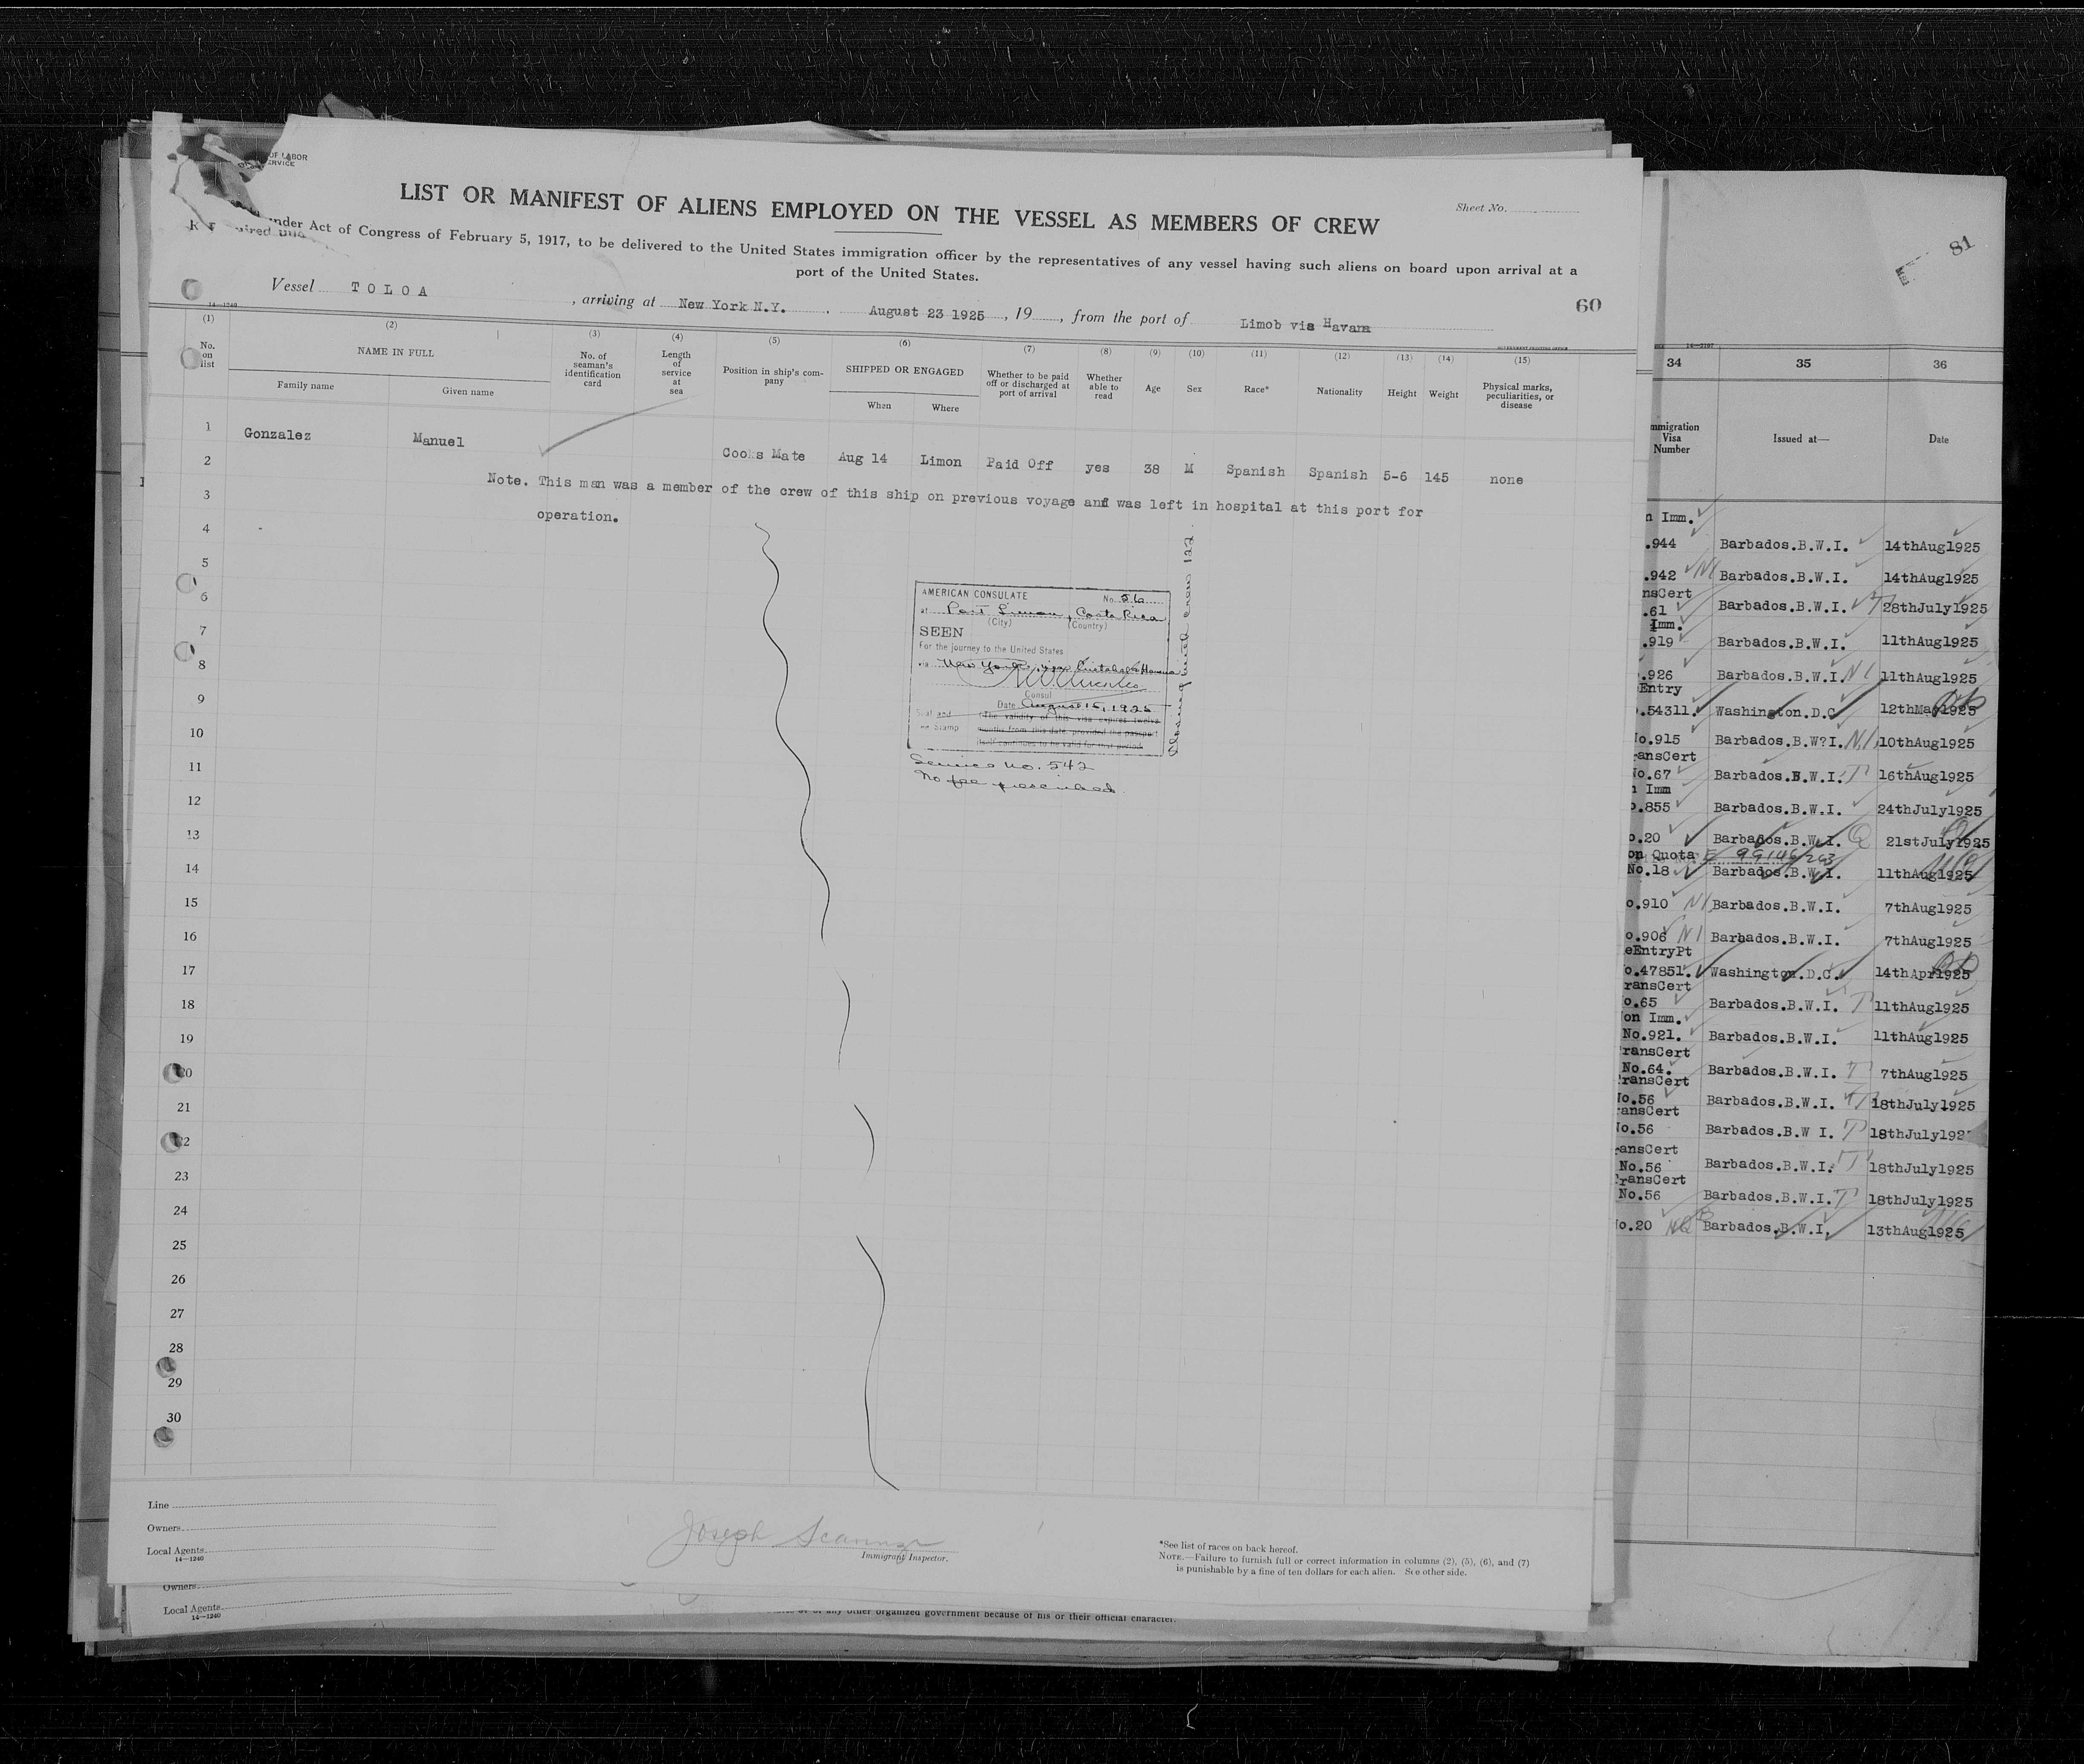 OF LABOR
Sheet No.
LIST OR MANIFEST OF ALIENS EMPLOYED ON THE VESSEL AS MEMBERS OF CREW
under Act of Congress of February 5, 1917, to be delivered to the United States immigration officer by the representatives of any vessel having such aliens on board upon arrival at a
port of the United States.
Vessel TOLOA , arriving at New York N.Y. , August 23 1925 , 19 , from the port of Limob via Havana
60
14—1240
(1) (2) (3) (4) (5) (6) (7) (8) (9) (10) (11) (12) (13) (14) (15)
No. on list
NAME IN FULL
Family name Given name
No. of seaman's identification card
Length of service at sea
Position in ship's company
SHIPPED OR ENGAGED
When Where
Whether to be paid off or discharged at port of arrival
Whether able to read
Age Sex Race* Nationality Height Weight
Physical marks, peculiarities, or disease
1 Gonzalez Manuel Cooks Mate Aug 14 Limon Paid Off yes 38 M Spanish Spanish 5-6 145 none
2
Note. This man was a member of the crew of this ship on previous voyage and was left in hospital at this port for
3
operation.
4
5
6
7
8
9
10
11
12
13
14
15
16
17
18
19
20
21
22
23
24
25
26
27
28
29
30
AMERICAN CONSULATE No. 56
at Port Limon, Costa Rica
(City) (Country)
SEEN
For the journey to the United States
via New York, via Cristobal & Havana
Consul
Date August 15, 1925
Seal and
(The validity of this visa expires twelve
months from this date, provided the passport
itself continues to be valid for that period.
Service No. 542
No fee prescribed
Line
Owners
Local Agents
14—1240
Joseph
Immigrant Inspector.
*See list of races on back hereof.
NOTE.—Failure to furnish full or correct information in columns (2), (5), (6), and (7)
is punishable by a fine of ten dollars for each alien. See other side.
Owners
Local Agents
14—1240
any other organized government because of his or their official character.
81
34 35 36
mmigration Visa Number
Issued at—
Date
n Imm.
.944 Barbados.B.W.I. 14thAug1925
.942 NI Barbados.B.W.I. 14thAug1925
nsCert
.61 Barbados.B.W.I. T 28thJuly1925
Imm.
.919 Barbados.B.W.I. 11thAug1925
.926 Barbados.B.W.I. NI 11thAug1925
Entry
.54311. Washington.D.C 12thMay1925
No.915 Barbados.B.W?I. NI 10thAug1925
ransCert
No.67 Barbados.B.W.I. T 16thAug1925
n Imm
o.855 Barbados.B.W.I. 24thJuly1925
o.20 Barbados.B.W.I. Q 21stJuly1925
on Quota
No.18 Barbados.B.W.I. 11thAug1925
o.910 NI Barbados.B.W.I. 7thAug1925
o.906 NI Barbados.B.W.I. 7thAug1925
eEntryPt
o.47851. Washington.D.C. 14thApr1925
ransCert
o.65 Barbados.B.W.I. T 11thAug1925
on Imm.
No.921. Barbados.B.W.I. 11thAug1925
ransCert
No.64. Barbados.B.W.I. T 7thAug1925
ransCert
No.56 Barbados.B.W.I. T 18thJuly1925
ransCert
No.56 Barbados.B.W I. T 18thJuly192
ransCert
No.56 Barbados.B.W.I. T 18thJuly1925
TransCert
No.56 Barbados.B.W.I. T 18thJuly1925
No.20 NQ Barbados.B.W.I. 13thAug1925